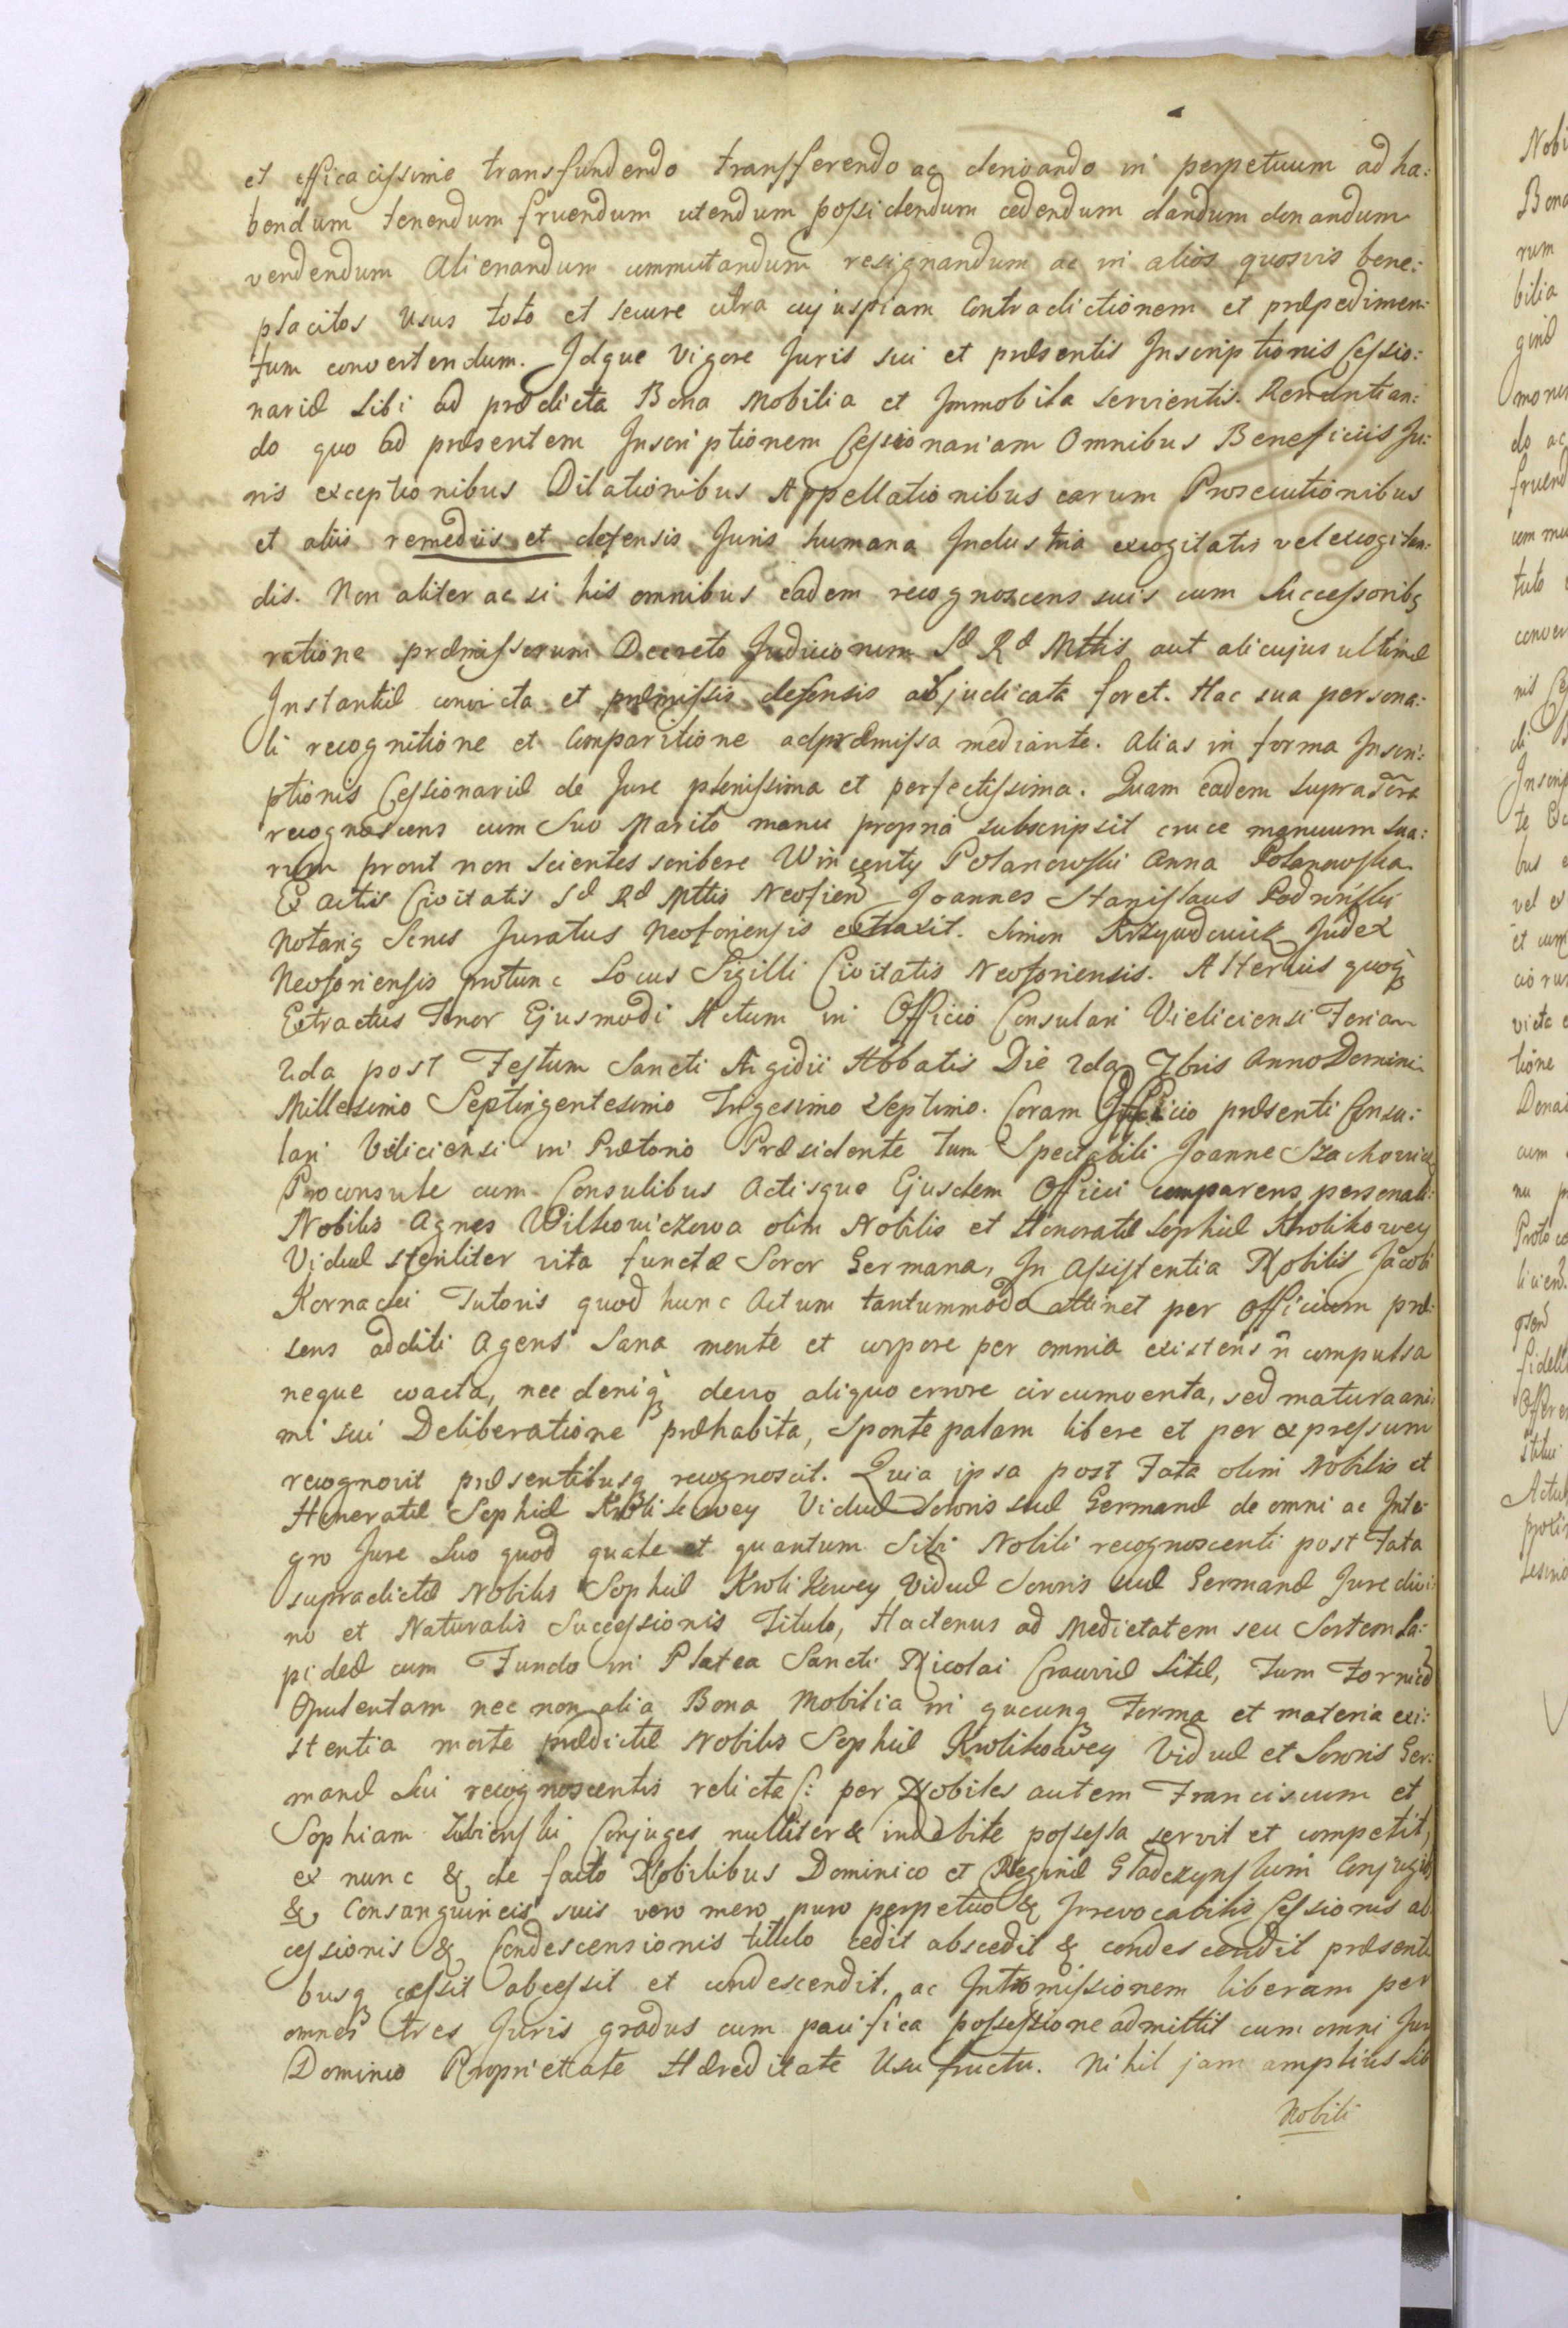 et efficacissime transfundendo transferendo ac derivando in perpetuum ad ha:
bendum tenendum fruendum utendum possidendum cedendum dandum donandum
vendendum Alienandum commutandum resignandum ac in alios quosvis bene:
placitos usus toto et secure citra cujuspiam Contradictionem et præpedimen:
tum convertendum. Idque vigore Juris sui et præsentis Inscriptionis Cessio:
nariæ sibi ad prædicta Bona Mobilia et Immobila servientis. Renuntian:
do quo ad præsentem Inscriptionem Cessionariam Omnibus Beneficiis Ju:
ris exceptionibus Dilationibus Appellationibus earum Prosecutionibus
et aliis remediis et defensis Juris humana Industria excogitatis vel excogitan:
dis. Non aliter ac si his omnibus eadem recognoscens suis cum Successoribq
ratione præmissorum Decreto Judiciorum Sæ Ræ Mttis aut alicujus ultimæ
Instantiæ convicta et præmissis defensis abjudicata foret. Hac sua persona:
li recognitione et Comparitione ad præmissa mediante. Alias in forma Inscri:
ptionis Cessionariæ de Jure plenissima et perfectissima. Quam eadem supradcta
recognoscens cum Suo Marito manu propria subscripsit cruce manuum sua:
rum prout non scientes scribere Wincenty Polanowski Anna Polanowska
Ex actis Civitatis Sæ Ræ Mttis Neoforien Joannes Stanislaus
Notariq Scnus Juratus Neoforiensis extraxit. Simon Judex
Neoforiensis protunc Locus Sigilli Civitatis Neoforiensis. Alterius quoq
Extractus Tenor Ejusmodi Actum in Officio Consulari Vieliciensi Feria
2da post Festum Sancti Ægidii Abbatis Die 2da 7bris Anno Domini
Millesimo Septingentesimo Trigesimo Septimo. Coram Officio præsenti Consu:
lari Vieliciensi in Prætorio Præsidente tum Spectabili Joanne
Proconsule cum Consulibus Actisque Ejusdem Officii comparens personali:
Nobilis Agnes Wilkowiczowa olim Nobilis et Honoratæ Sophiæ Krolikowey
Viduæ steriliter vita functæ Soror Germana, In Assistentia Nobilis Jacobi
Kornacki Tutoris quod hunc Actum tantummodo attinet per Officium præ:
sens additi Agens Sana mente et corpore per omnia existens ñ compulsa
neque coacta, nec deniq devio aliquo errore circumventa, sed matura ani:
mi sui Deliberatione præhabita, sponte palam libere et per expressum
recognovit præsentibusq recognoscit. Quia ipsa post Fata olim Nobilis et
Honoratæ Sophiæ Krolikowey Viduæ Sororis suæ Germanæ de omni ac Inte:
gro Jure Suo quod quale et quantum Sibi Nobili recognoscenti post Fata
supradictæ Nobilis Sophiæ Krolikowey Viduæ Sororis suæ Germanæ Jure divi:
no et Naturalis Successionis Titulo, Hactenus ad Medietatem seu Sortem La:
pideæ cum Fundo in Platea Sancti Nicolai Cracoviæ Sitæ, Tum
Opulentam nec non alia Bona Mobilia in qucunq Forma et materia exi:
stentia morte prædictæ Nobilis Sophiæ Krolikowey Viduæ et Sororis Ger:
manæ Sui recognoscentis relicta /: per Nobiles autem Franciscum et
Sophiam Conjuges nulliter & indebite possessa servit et competit,
ex nunc & de facto Nobilibus Dominico et Reginæ Conjugib
& Consanguineis suis vero mero puro perpetuo & Irrevocabilis Cessionis ab
cessionis & Condescensionis titulo cedit abscedit & condescendit præsenti
busq cessit abcessit et condescendit, ac Intromissionem liberam per
omnes tres Juris gradus cum pacifica possessione admittit cum omni Jure
Dominio Proprietate Hæreditate Usufructu. Nihil jam amplius sib
Nobili